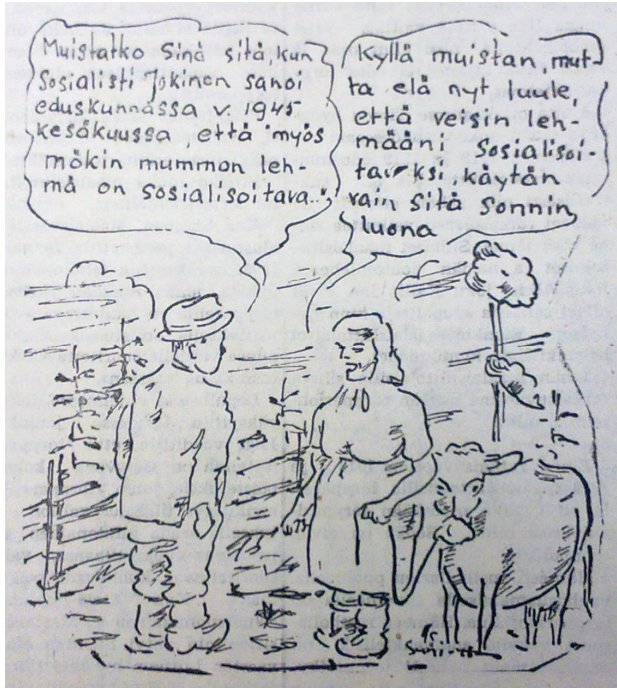 Muistatko Sinä sitä, kun
Sosialisti Jokinen sanoi
eduskunnassa v. 1945
kesäkuussa, että "myös
mökin mummon leh-
mä on sosialisoitava..".
Kyllä muistan, mut-
ta elä nyt luule,
että veisin leh-
määni Sosialisoi-
tavaksi, käytän
vain sitä Sonnin
luona